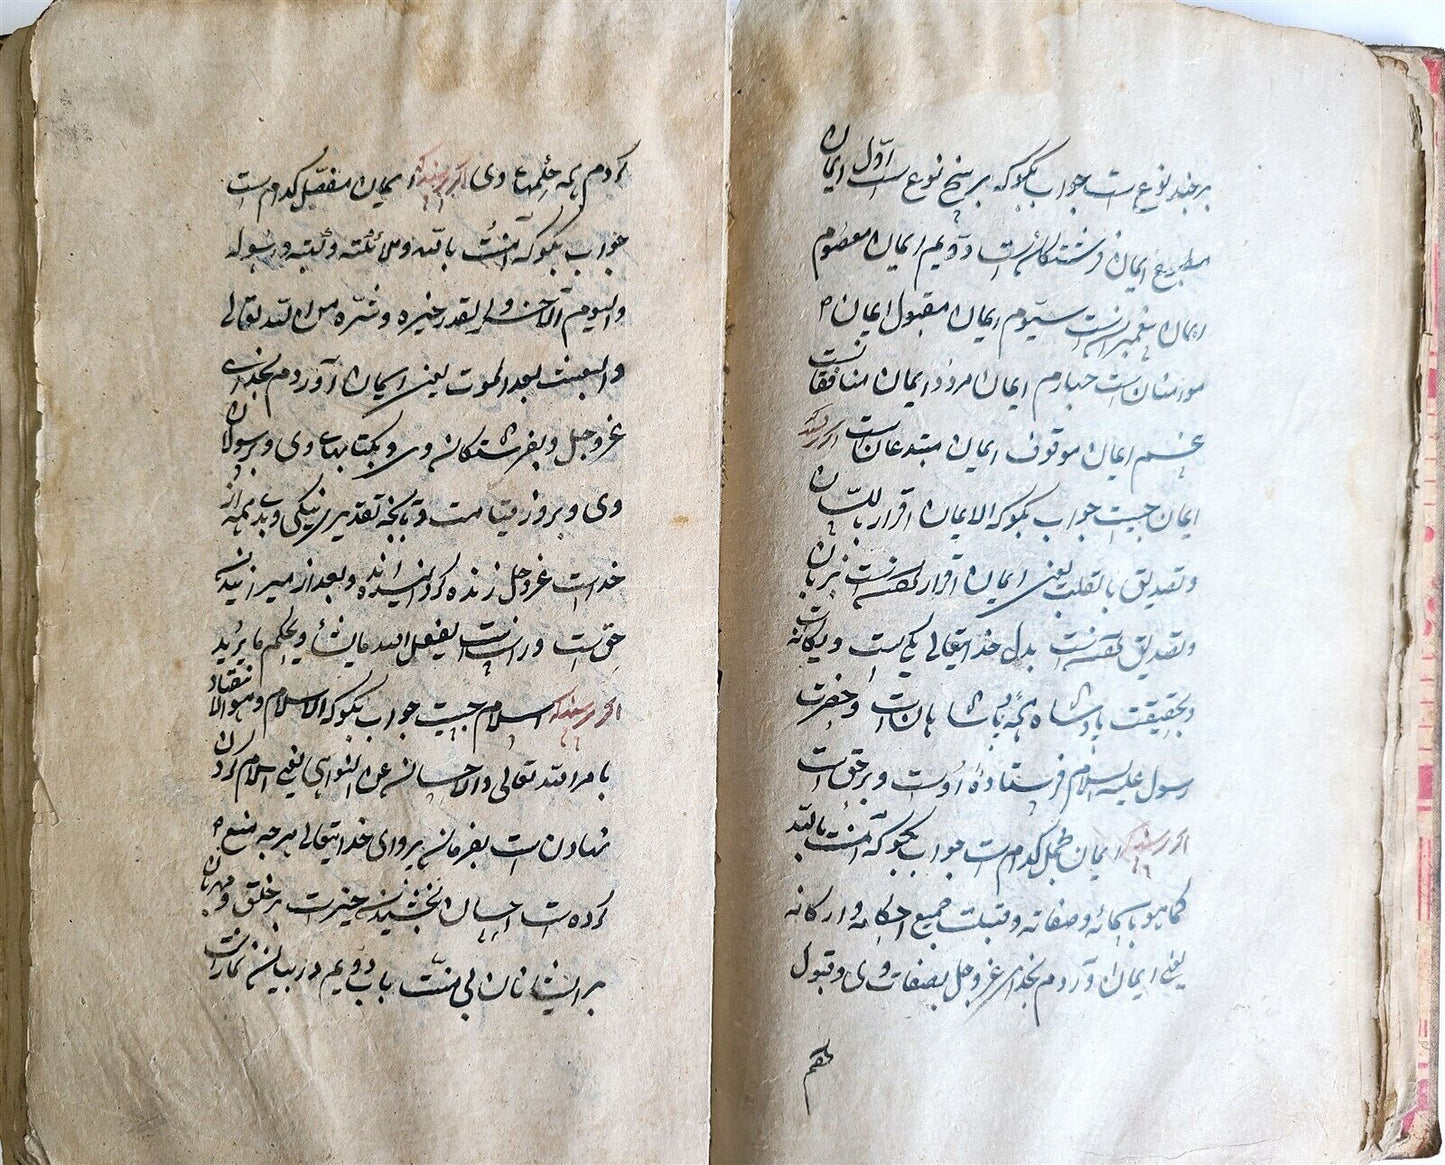 بر چند نوع ست جواب بگو که بر پنج نوع ست اول ایمان
مطبوع ایمان فرشتکان ست دویم ایمان معصوم
ایمان پیغمبران ست سیوم ایمان مقبول ایمان
مومنان ست چهارم ایمان مردود ایمان منافقانست
پنجم ایمان موقوف ایمان مبتدعان است اگر پرسند که
ایمان چیست جواب بگو که الایمان اقرار باللسان
و تصدیق بالقلب یعنی ایمان اقرار کفتنست بزبان
و تصدیق کفتنست بدل خدایتعالی یکیست و یکانه است
و بحقیقت پادشاه همه پادشاهان است و حضرت
رسول علیه السلام فرستادهٔ اوست و بر حق است
اگر پرسند که ایمان مجمل کدام ست جواب بگو که آمنت بالله
کما هو باسمائه و صفاته و قبلت جمیع احکامه و ارکانه
یعنی ایمان آوردم بخدای عز و جل بصفات وی و قبول
کردم همه حکمهای وی اگر پرسند که ایمان مفصل کدام است
جواب بگو که آمنت بالله و ملائکته و کتبه و رسوله
والیوم الآخر والقدر خیره و شره من الله تعالی
والبعث بعد الموت یعنی ایمان آوردم بخدای
عز و جل و بفرشتکان وی و بکتابهای وی و برسولان
وی و بروز قیامت و بانکه تقدیر نیکی و بدی همه از
خداست عز و جل زنده کردانیده اند و بعد از میرانیدن
حق است و راست است یفعل الله ما یشأ و یحکم ما یرید
اگر پرسند که اسلام چیست جواب بگو که الاسلام و هو الانقیاد
بامر الله تعالی و الاحسان عن النواهی یعنی اسلام کردن
نهادن است بفرمان بروای خدایتعالی هر چه منع
کرده است احسان بخشیدن خیرت بر خلق و مهربان
بر ایشانان بی منت باب دویم در بیان نمازست